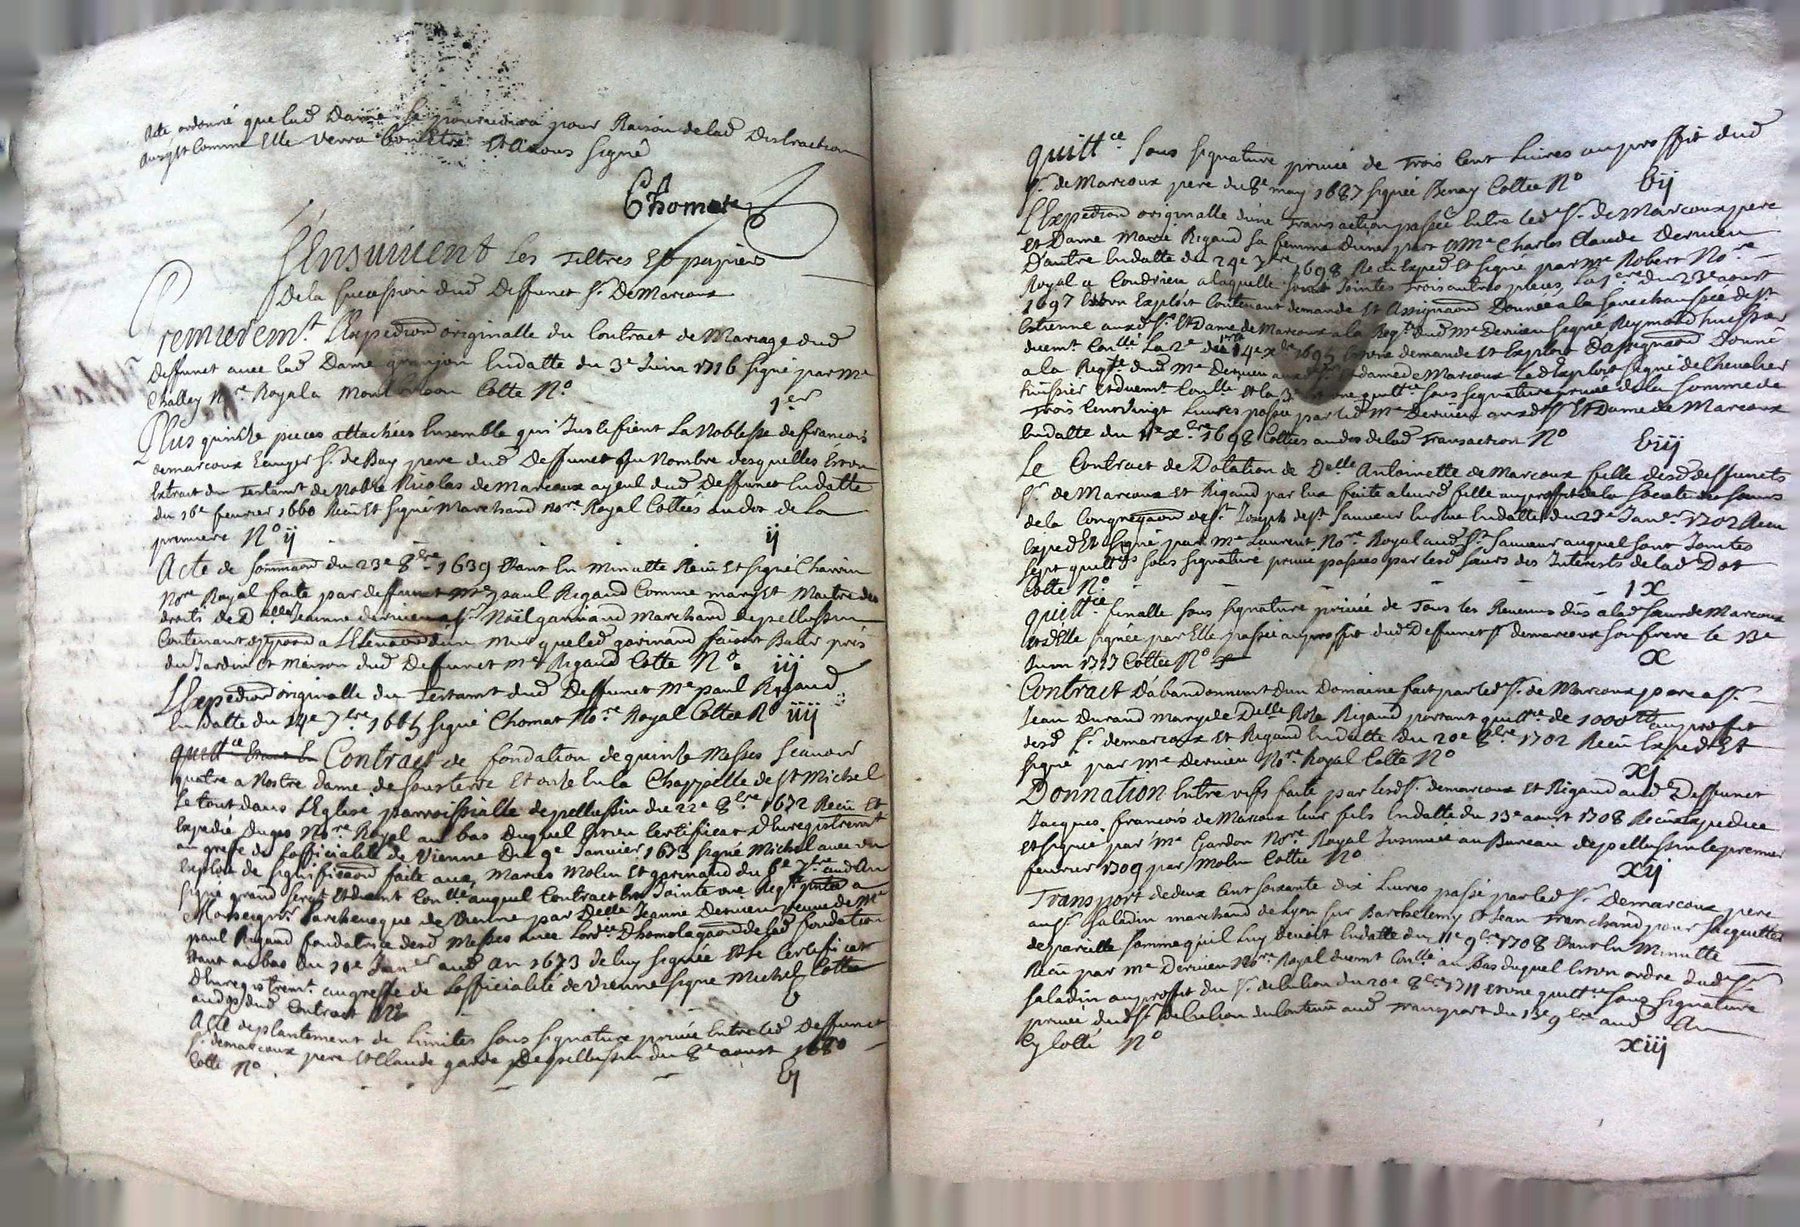 acte ordonné que lad Dame se pourvoira pour Raison de lad Distraction
ainsy et comme Elle verra bon Etre Et avons signé
Chomat
S'Ensuivent les Tiltres Et papiers
De la succession dud Deffunct Sr De Marcoux
Premieremt L'Expedion originalle du Contract de Mariage dud
deffunct avec lad Dame granjon En datte du 3e Juin 1716 signé par Me
Challey Nre Royal a Montbrison Cotte No
1er
Plus quinze pieces attachées Ensemble qui Justifient La Noblesse de francois
demarcoux Ecuyer Sr de Bay pere dud Deffunct Au Nombre desquelles Est un
Extract du Testamt de Noble Nicolas de Marcoux ayeul dud Deffunct En datte
du 16e fevrier 1660 Receu Et signé Marchand Nore Royal Cottées au dos de La
premiere No ij
ij
Acte de sommaon du 23e 8bre 1639 Etant En Minutte Receu Et signé Charvin
Nore Royal faite par deffunct Me paul Rigaud Comme mary Et Maitre des
droits de Delle Jeanne dervieu a Sr Noël garinand Marchand de pellussin
Contenant opposion a L'Elevaon d'un Mur que led garinand faisoit Batir prés
du Jardin Et Maison dud Deffunct Me Rigaud Cotte No iij
L'Expedion originalle du Testamt dud Deffunct Me paul Rigaud
En datte du 14e 7bre 1665 signé Chomat Nore Royal Cottee No iiij
quittce Etant E Contract de fondation de quinze Messes scavoir
quatre a Nostre dame de sousterre Et onze En la Chappelle de St Michel
Le tout dans L'Eglise parroissialle de pellussin du 22e 8bre 1672 Receu Et
Expedié Duges Nore Royal au bas Duquel Est un Certificat D'Enregistremt
au grefe de Lofficialité de Vienne Du 9e Janvier 1673 signé Michel avec un
Exploit de significaon faite aux Mariés Molin Et garinand du 5e 7bre aud An
signé grand sergt Et dument Conllé auquel Contract Est Jointe une Reqte a
Monseignr Larcheveque de Vienne par Delle Jeanne Dervieu veuve de Me
paul Rigaud fondatrice desd Messes avec Lordce D'homologaon de lad fondation
Etant au bas du 10e Janer aud An 1673 de luy signée Et Le Certificat
D'Enregistremt au greffe de Lofficialité de Vienne signé Michel Cotté
au dos dud Contract No
Acte de plantement de Limites sous signature privée Entre led Deffunct
Sr demarcoux pere Et Claude garde De pellussin du 8e aoust 1680
Cotté No
vj
quittce sous signature privée de Trois Cent Livres au proffit dud
Sr de Marcoux pere du 8e may 1687 signée Benay Cottee No vij
L'Expedion originalle d'une Transaction passée Entre led Sr de Marcoux pere
Et Dame Marie Rigaud sa femme d'une part Et Me Charles Claude Dervieu
D'autre En datte du 24e 7bre 1698 Receu Exped Et signé par Me Robert Nore
Royal a Condrieu a laquelle sont Jointes Trois autres pieces, La 1ere du 23e aoust
1697 Est un Exploit Contenant demande Et Assignaon Donnée a la senechaussée de St
Estienne auxd Sr Et Dame de Marcoux a la Reqte dud Me Dervieu signé Reymond huissier
duemt Conllé La 2e du 14e xbre 1695 Est une demande Et Exploit D'assignaon Donné
a la Reqte dud Me Dervieu auxd Sr Et dame de Marcoux Led Exploit signé de Chevalier
huissier Et duemt Conllé Et la 3e Est une quittce sous signature privée de la somme de
Trois Cent vingt Livres passée par led Me Dervieu auxd Sr Et Dame de Marcoux
En datte du 11e xbre 1698 Cottées au dos de lad Transaction No viij
Le Contract de Dotation de Delle Antoinette de Marcoux fille desd deffuncts
Sr de Marcoux Et Rigaud par Eux faite a leurd fille au proffit de la societé des sœurs
de la Congregaon de St Joseph de St Sauveur En Rue En datte du 23e Janer 1702 Receu
Exped Et signé par Me Laurent Nore Royal aud St Sauveur auquel sont Jointes
sept quittces sous signature privée passées par lesd sœurs des Interests de lad Dot
Cotté No
IX
quittce finalle sous signature privée de Tous les Revenus dûs a lad sœur de Marcoux
Et d'Elle signée par Elle passée au proffit dud Deffunct Sr demarcoux son frere le 13e
Juin 1717 Cottee No
X
Contract D'abandonnemt D'un Domaine fait par led Sr de Marcoux pere a Sr
Jean Durand mary de Delle Rose Rigaud portant quittce de 1000 ll au proffit
desd Sr demarcoux Et Rigaud En datte du 20e 8bre 1702 Receu Exped Et
signé par Me Dervieu Nore Royal Cotte No
XJ
Donnation Entre vifs faite par lesd Sr demarcoux Et Rigaud aud Deffunct
Jacques francois de Marcoux leur fils En datte du 13e aoust 1708 Receu Expediée
Et signée par Me Gardon Nore Royal Insinuée au Bureau de pellussin le premier
fevrier 1709 par Molin Cotte No
xij
Transport de deux Cent soixante dix Livres passé par led Sr Demarcoux pere
au Sr saladin marchand de Lyon sur Barthelemy Et Jean Tranchand pour Jacquettes
de pareille somme qu'il Luy devoit En datte du 11e 9bre 1708 Etant En Minutte
Receu par Me Dervieu Nore Royal duemt Conllé au Bas duquel Est un ordre dud Sr
saladin au proffit du Sr debulion du 20e 8bre 1711 Et une quittce sous signature
privée dud Sr debulion du Contenu aud Transport du 13e 9bre aud An
Cy Cotté No
xiij